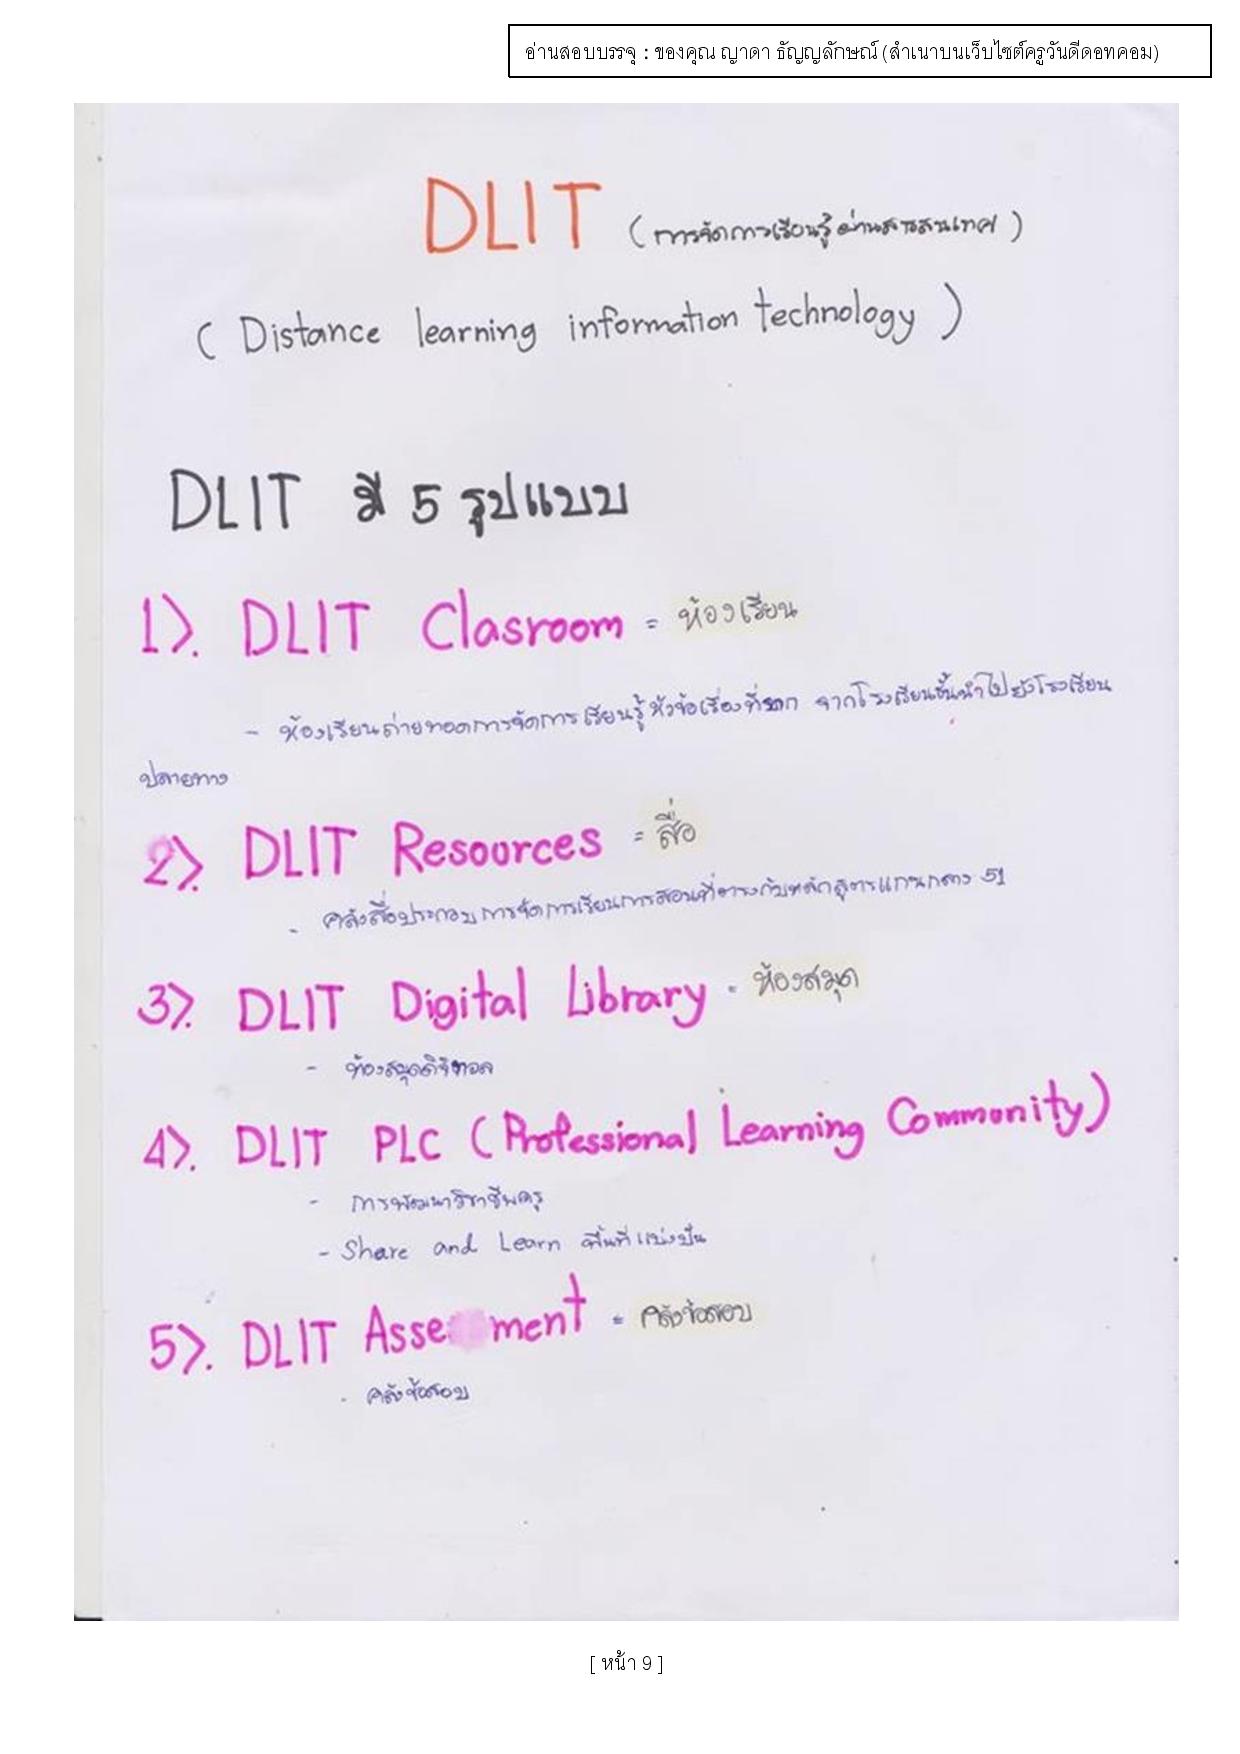 อ่านสอบบรรจุ : ของคุณ ญาดา ธัญญลักษณ์ (สำเนาบนเว็บไซต์ครูวันดีดอทคอม)
DLIT (การจัดการเรียนรู้ผ่านสารสนเทศ)
( Distance learning information technology )
DLIT มี 5 รูปแบบ
1). DLIT Clasroom = ห้องเรียน
- ห้องเรียนถ่ายทอดการจัดการเรียนรู้หัวข้อเรื่องที่ยาก จากโรงเรียนชั้นนำไปยังโรงเรียน
ปลายทาง
2). DLIT Resources = สื่อ
- คลังสื่อประกอบการจัดการเรียนการสอนที่ตรงกับหลักสูตรแกนกลาง 51
3). DLIT Digital Library = ห้องสมุด
- ห้องสมุดดิจิทอล
4). DLIT PLC (Professional Learning Community)
- การพัฒนาวิชาชีพครู
- Share and Learn พื้นที่แบ่งปัน
5). DLIT Asse ment = คลังข้อสอบ
- คลังข้อสอบ
[ หน้า 9 ]